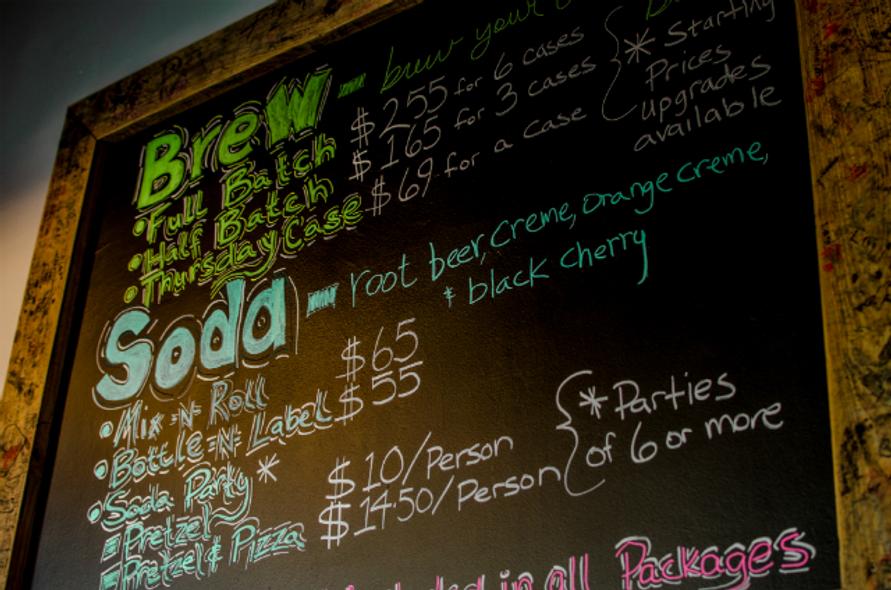 Brew - brew your
• Full Batch $255 for 6 cases
• Half Batch $165 for 3 cases
• Thursday Case $69 for a case
* Starting
Prices
upgrades
available
Soda - root beer, creme, orange creme,
& black cherry
• Mix-N-Roll $65
• Bottle-N-Label $55
• Soda Party *
Pretzel $10/Person
Pretzel & Pizza $14.50/Person
* Parties
of 6 or more
in all Packages